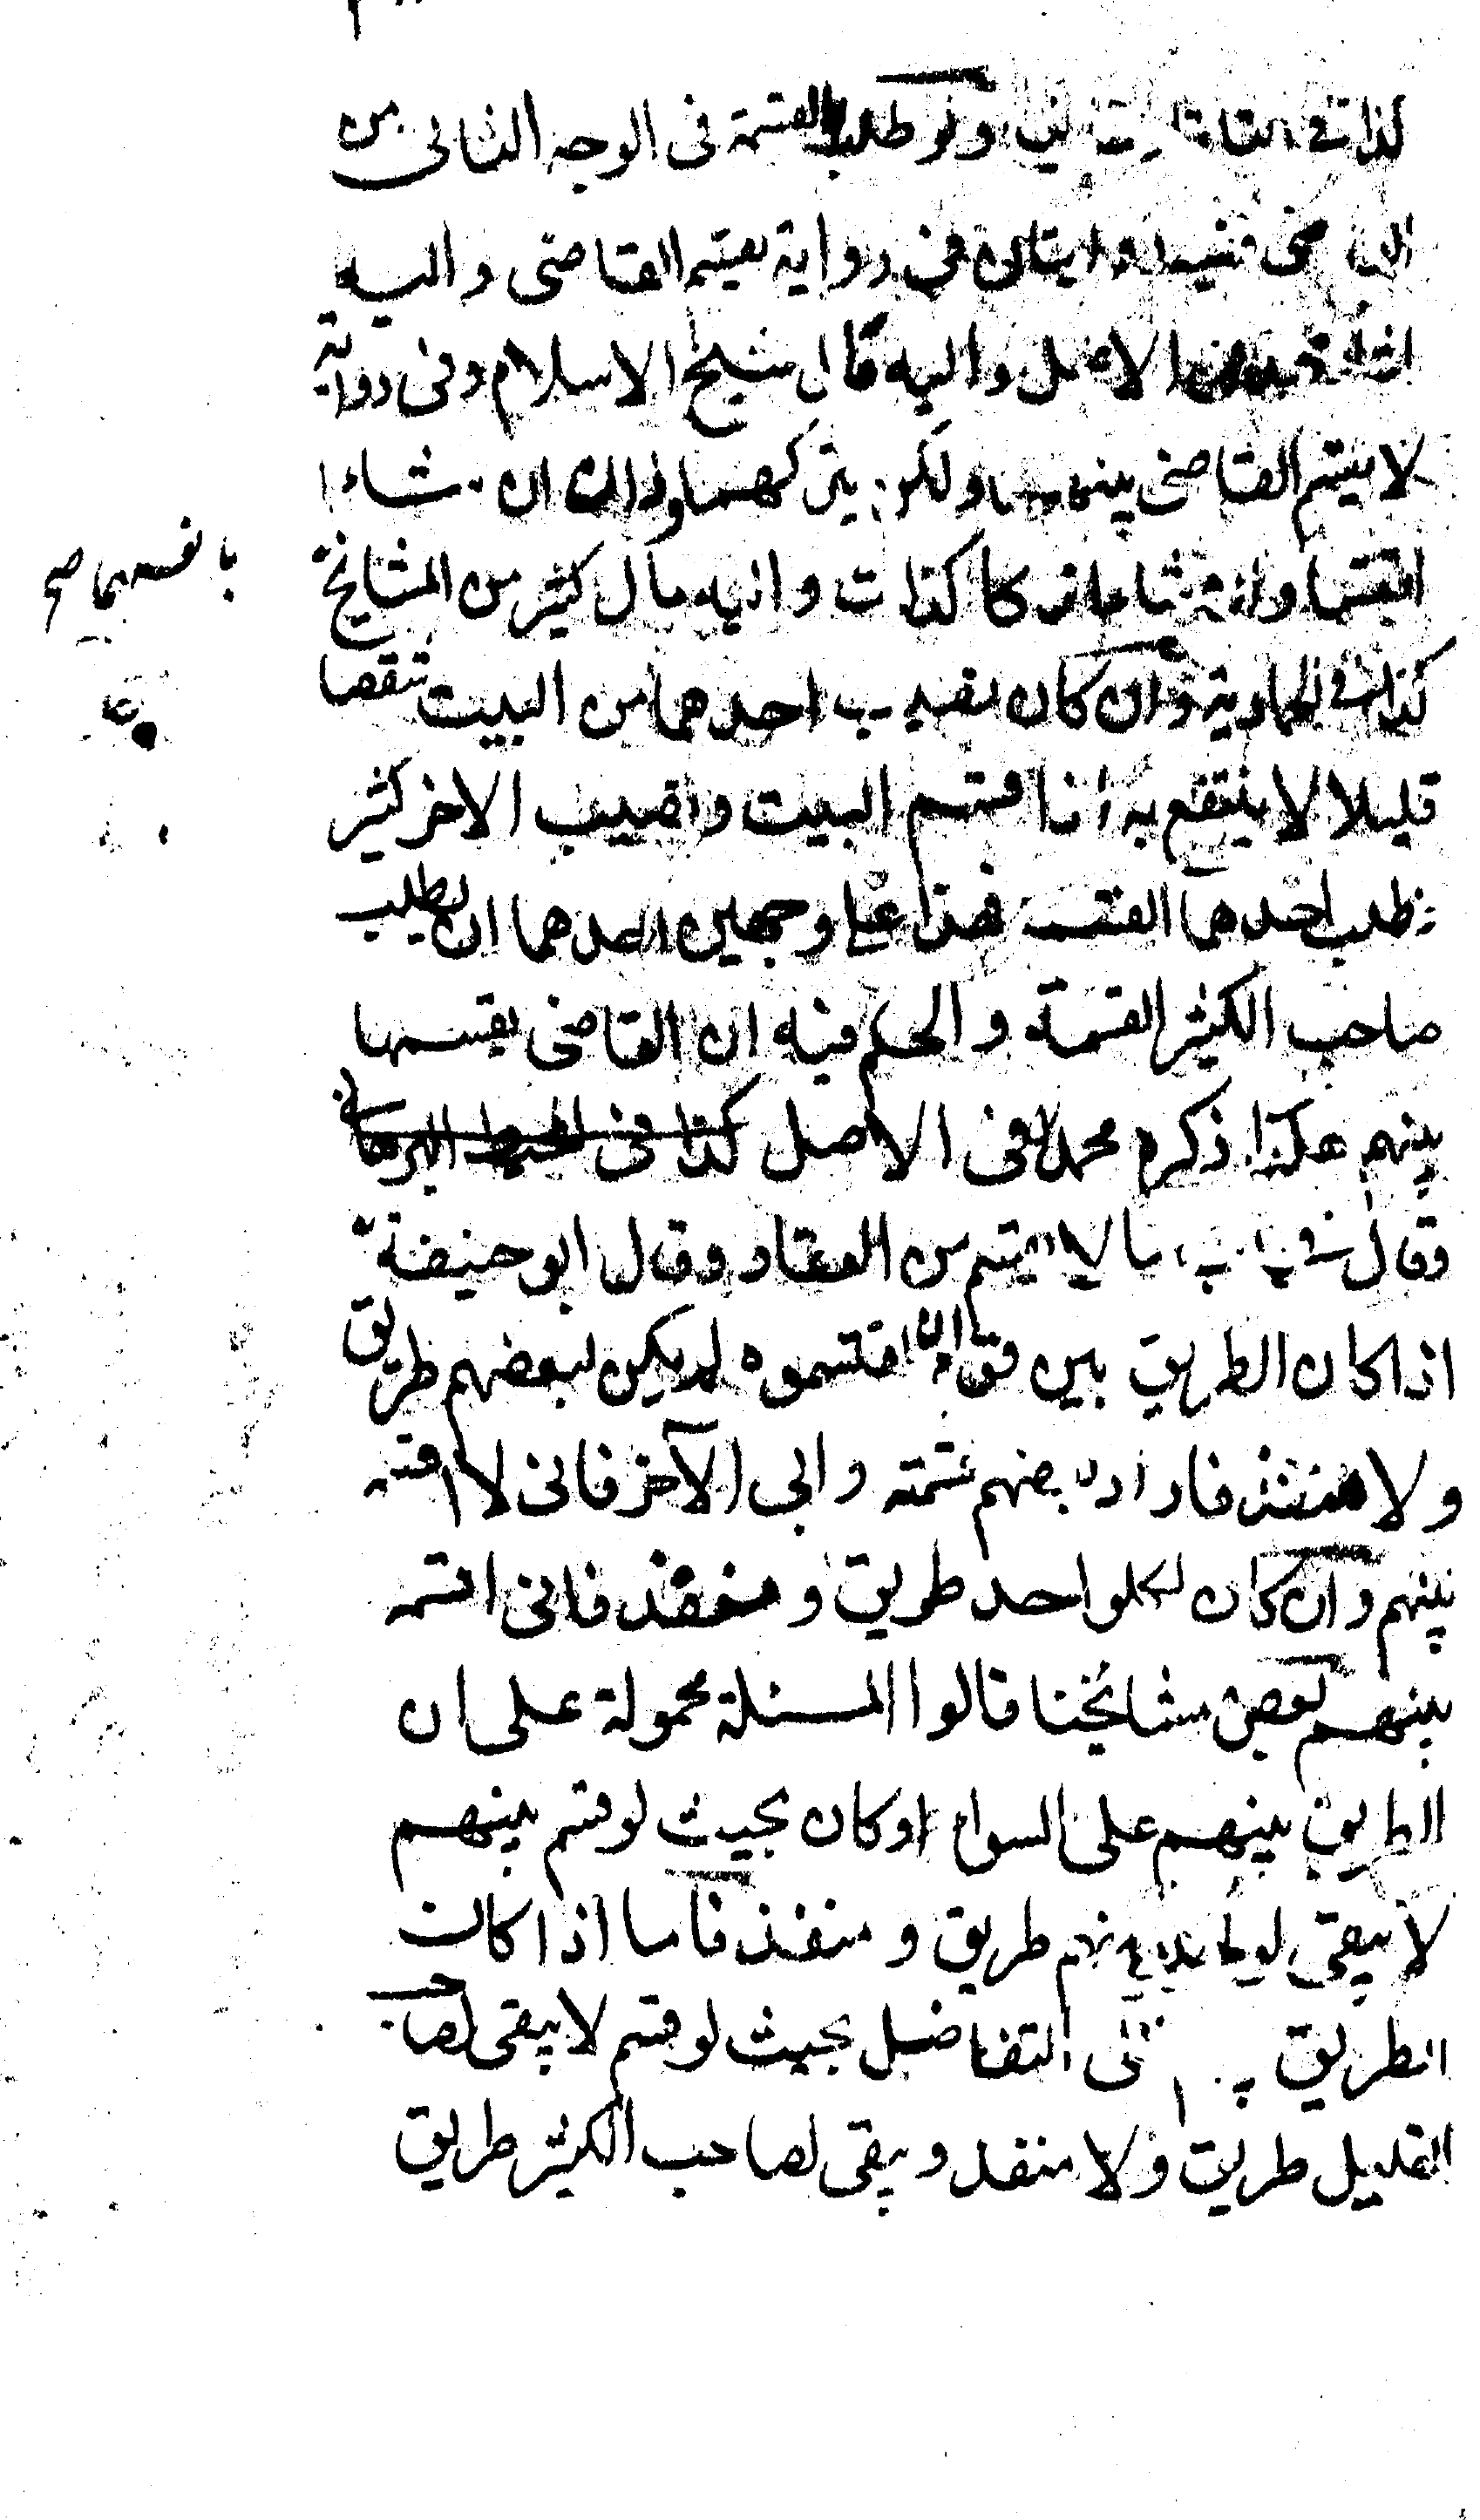 كذا في التاتارخانيه ولو طلبا القسمة فى الوجه الثانى من
القاضى ففيه روايتان فى رواية يقسم القاضى واليه
اشار فى الاصل واليه مال شيخ الاسلام وفى رواية
لا يقسم القاضى بينهما ولكن يتركهما وذالك ان شاءا
اقتسما وان شاءا تركا كذلك واليه مال كثير من المشائخ
بانفسهما صح
كذا فى الحمادية وان كان نصيب احدهما من البيت شقصا
قليلا لا ينتفع به اذا قسم البيت ونصيب الاخر كثير
فطلب احدهما القسمة فهذا على وجهين احدهما ان يطلب
صاحب الكثير القسمة والحكم فيه ان القاضى يقسمها
بينهم هكذا ذكره محمد فى الاصل كذا فى المحيط البرهانى
وقال فى باب ما لا يقسم من العقار وقال ابو حنيفة
اذا كان الطريق بين قوم ان اقتسموه لم يكن لبعضهم طريق
ولا منفذ فاراد بعضهم قسمته وابى الآخر فانى لا اقسم
بينهم وان كان لكل واحد طريق ومنفذ فانى اقسمه
بينهم بعض مشائخنا قالوا المسئلة محمولة على ان
الطريق بينهم على السواء اوكان بحيث لو قسم بينهم
لا يبقى لواحد منهم طريق ومنفذ فاما اذا كان
الطريق على التفاضل بحيث لو قسم لا يبقى لصاحب
القليل طريق ولا منفذ ويبقى لصاحب الكثير طريق